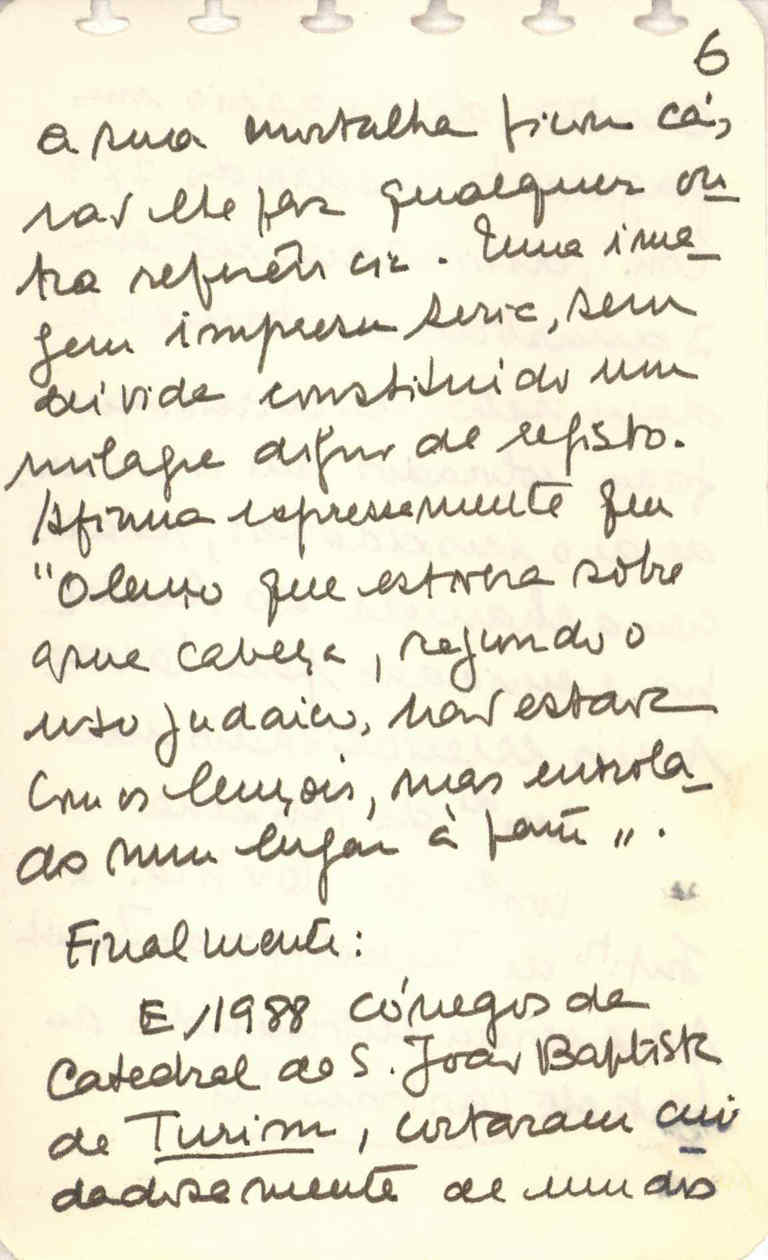 6
a sua mortalha ficou cá,
não lhe faz qualquer ou-
tra referência. Uma ima-
gem impressa seria, sem
dúvida constituido um
milagre digno de registo.
Afirma expressamente que
"O lenço que estivera sobre
a sua cabeça, segundo o
uso judaico, não estava
com os lençóis, mas enrola-
do num lugar à parte".
Finalmente:
E, 1988 cónegos da
Catedral de S. João Baptista
de Turim, cortaram cui-
dadosamente de um dos